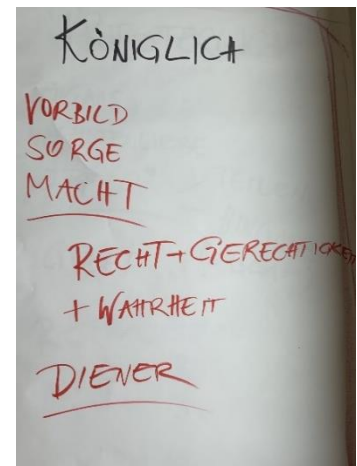 KÖNIGLICH
VORBILD
SORGE
MACHT
RECHT + GERECHTIGKEIT
+ WAHRHEIT
DIENER